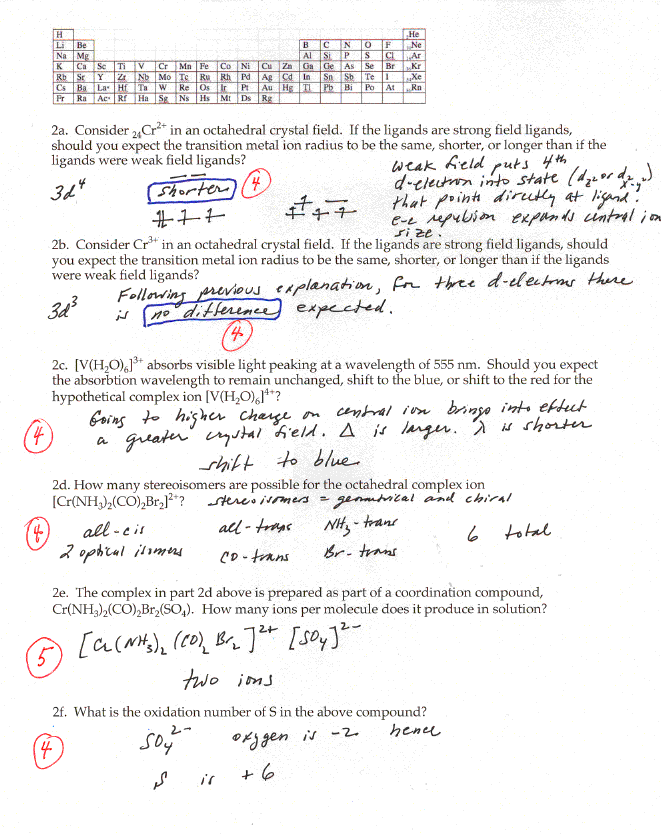 H He
Li Be B C N O F Ne
Na Mg Al Si P S Cl Ar
K Ca Sc Ti V Cr Mn Fe Co Ni Cu Zn Ga Ge As Se Br Kr
Rb Sr Y Zr Nb Mo Tc Ru Rh Pd Ag Cd In Sn Sb Te I Xe
Cs Ba La Hf Ta W Re Os Ir Pt Au Hg Tl Pb Bi Po At Rn
Fr Ra Ac Rf Ha Sg Ns Hs Mt Ds Rg
2a. Consider ₂₄Cr²⁺ in an octahedral crystal field. If the ligands are strong field ligands,
should you expect the transition metal ion radius to be the same, shorter, or longer than if the
ligands were weak field ligands?
weak field puts 4th
d-electron into state (dz² or dx²-y²)
that points directly at ligand.
e-e repulsion expands central ion
size.
3d⁴ shorter 4
2b. Consider Cr³⁺ in an octahedral crystal field. If the ligands are strong field ligands, should
you expect the transition metal ion radius to be the same, shorter, or longer than if the ligands
were weak field ligands?
Following previous explanation, for three d-electrons there
3d³ is no difference expected.
4
2c. [V(H₂O)₆]³⁺ absorbs visible light peaking at a wavelength of 555 nm. Should you expect
the absorbtion wavelength to remain unchanged, shift to the blue, or shift to the red for the
hypothetical complex ion [V(H₂O)₆]⁴⁺?
Going to higher charge on central ion brings into effect
4 a greater crystal field. Δ is larger. λ is shorter
shift to blue
2d. How many stereoisomers are possible for the octahedral complex ion
[Cr(NH₃)₂(CO)₂Br₂]²⁺? stereoisomers = geometrical and chiral
4 all-cis all-trans NH₃-trans 6 total
2 optical isomers CO-trans Br-trans
2e. The complex in part 2d above is prepared as part of a coordination compound,
Cr(NH₃)₂(CO)₂Br₂(SO₄). How many ions per molecule does it produce in solution?
5 [Cr(NH₃)₂(CO)₂Br₂]²⁺ [SO₄]²⁻
two ions
2f. What is the oxidation number of S in the above compound?
4 SO₄²⁻ oxygen is -2 hence
S is +6